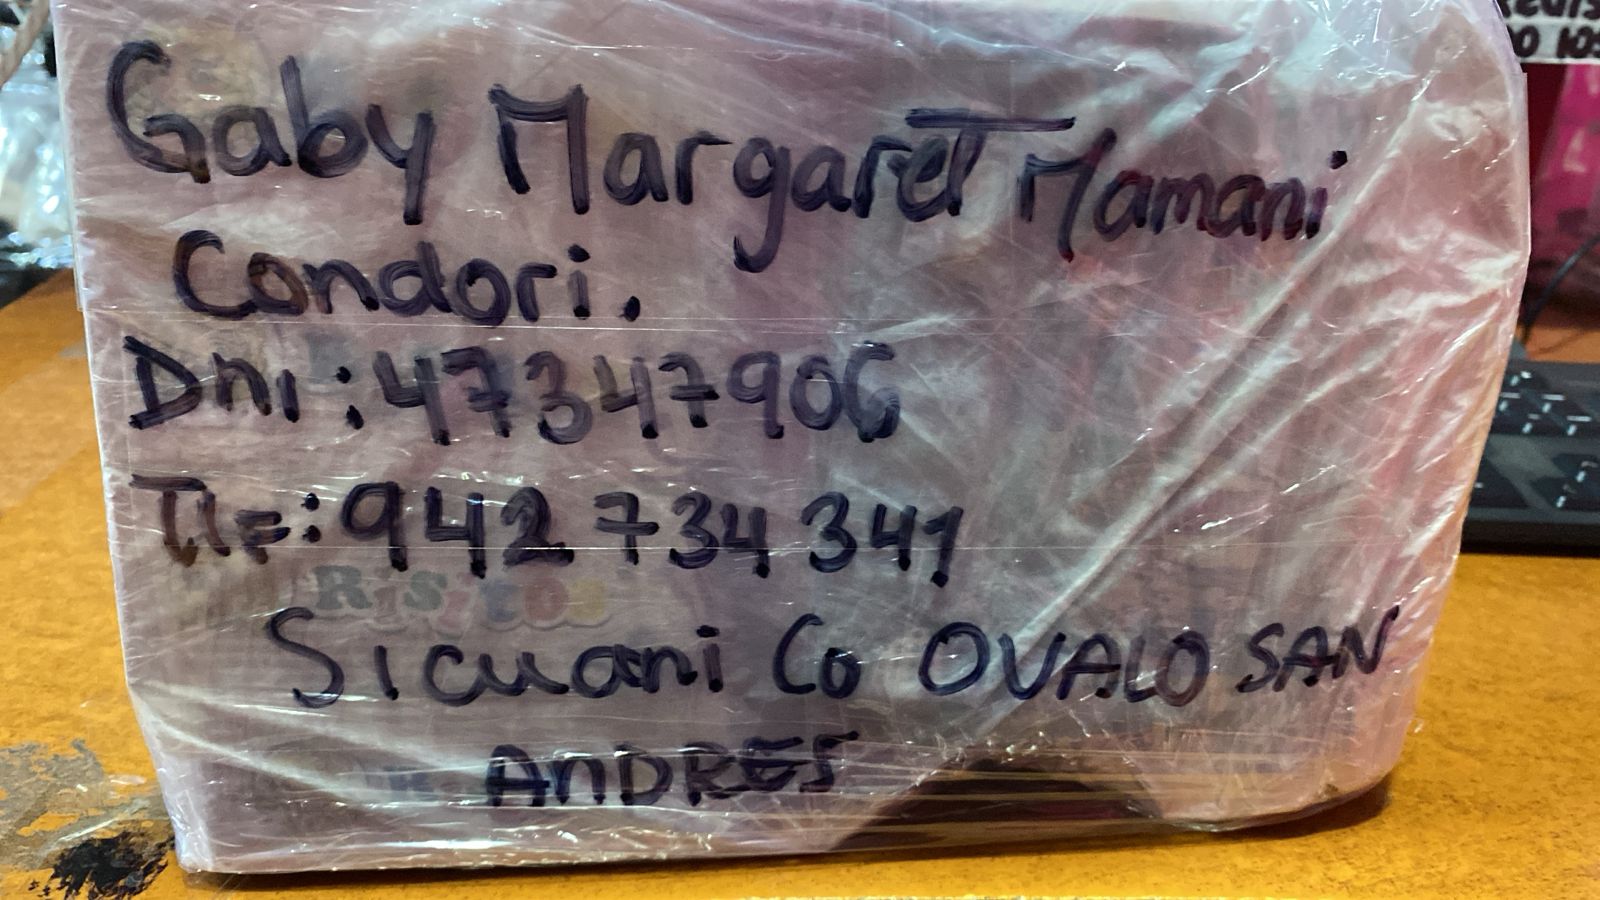 Gaby Margaret Mamani
Condori.
Dni: 47347906
Tlf: 942 734 341
Risitos
Sicuani Co OVALO SAN
ANDRES